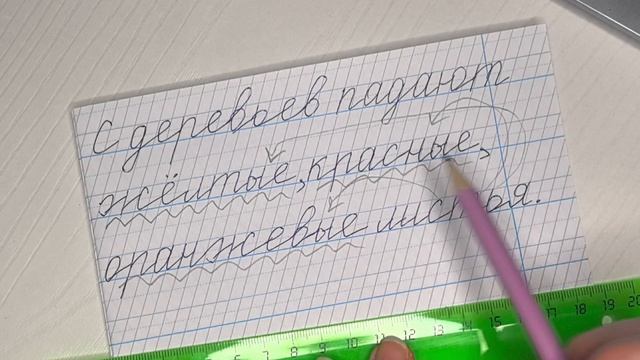 С деревьев падают
жёлтые, красные,
оранжевые листья.
6 7 8 9 10 11 12 13 14 15 16 17 18 19 20